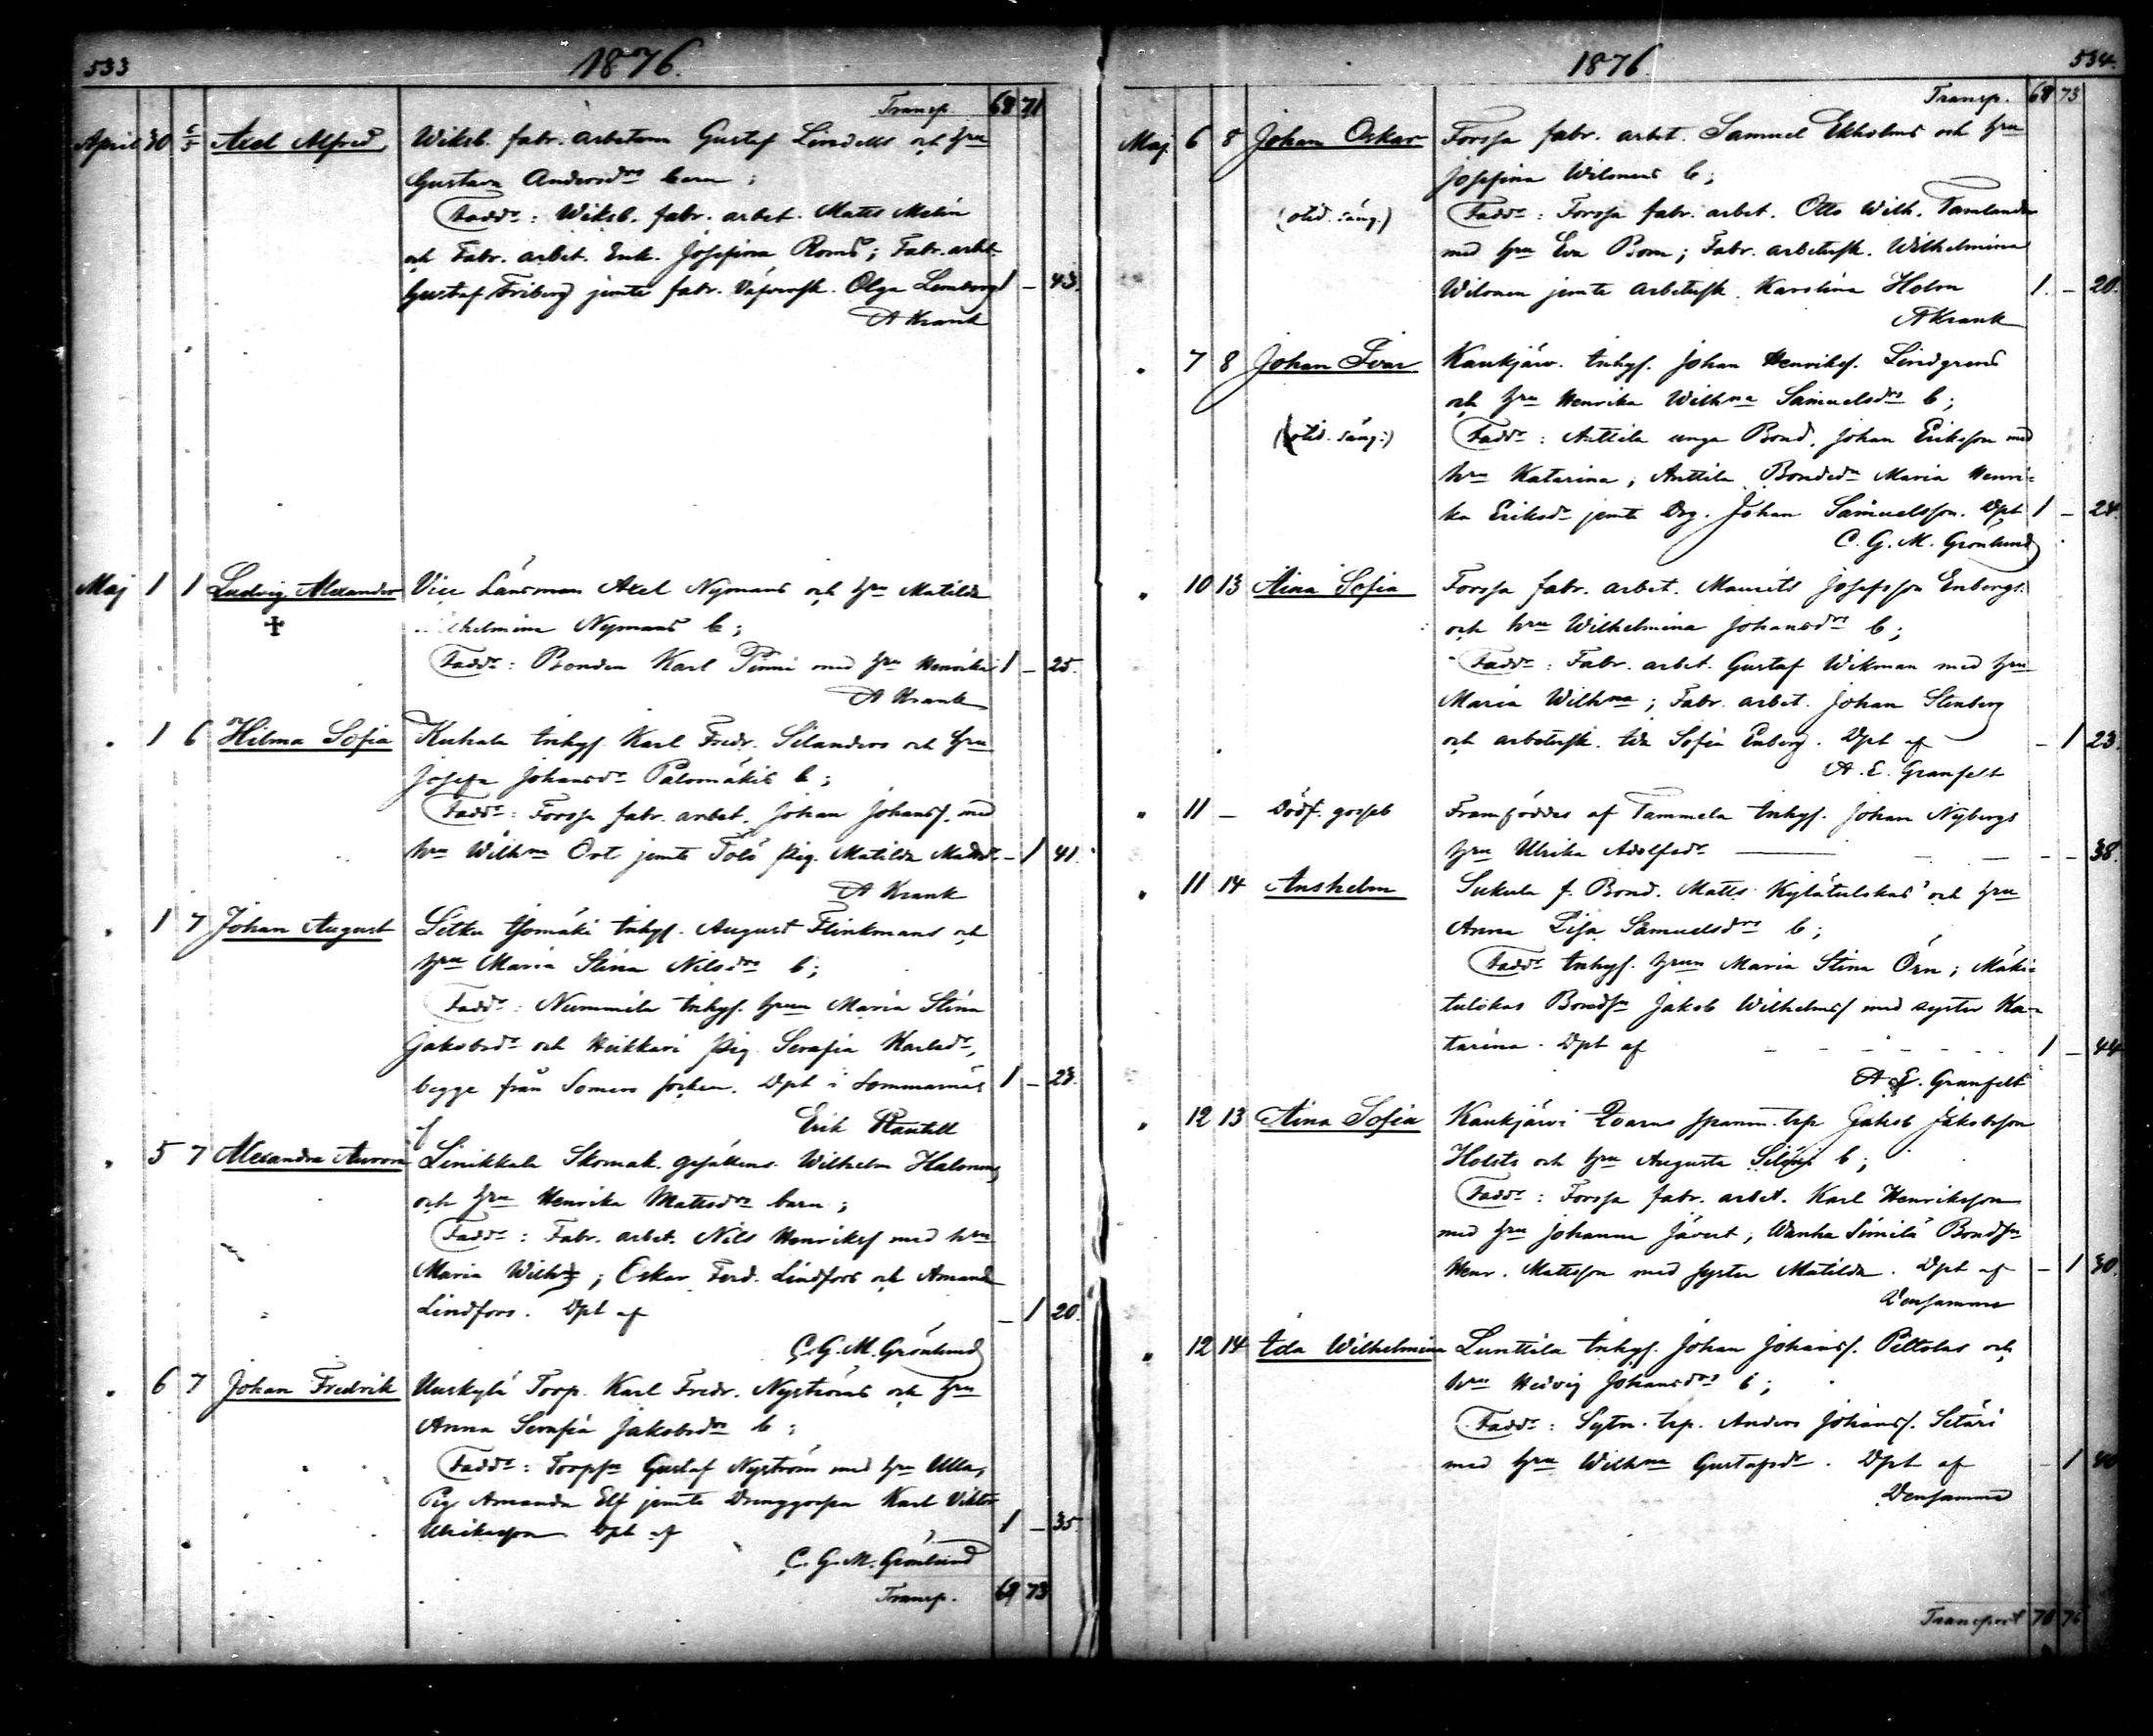 533
1876.
Transp. 68 71
April 30 6/5 Axel Alfred Wiksb. fabr. arbetaren Gustaf Lindells och hru
Gustava Andersdrs barn;
Faddr: Wiksb. fabr. arbet. Matts Melin
och Fabr. arbet. Enk. Josefina Roms; Fabr. arbet.
Gustaf Friberg jemte fabr. Olga Lemberg 1 – 43.
A Krank
Maj 1 1 Ludvig Alexander Vice Länsman Axel Nymans och hru Matilda
helmina Nymans b;
Faddr: Bonden Karl Pinni med hru Henrika 1 – 25.
A Krank
" 1 6 Hilma Sofia Kuhala Inhys. Karl Fredr. Silanders och hru
Josefa Johansdr Palomäkis b;
Faddr: Forssa fabr. arbet. Johan Johanss. med
hru Wilhna Ort jemte Tolo pig. Matilda Mattsdr – 1 41.
A Krank
" 1 7 Johan August Letku Isomäki Inhys. August Flinkmans och
hru Maria Stina Nilsdrs b;
Faddr: Nummila Inhys. hrun Maria Stina
Jakobsdr och Heikkari Pig. Serafia Karlsdr,
begge från Somero socken. Dpt i Sommarnäs 1 – 23.
af Erik
" 5 7 Alexandra Aurora Linikkala Skomak. gesällens Wilhelm Halonens
och hru Henrika Mattsdrs barn;
Faddr: Fabr. arbet. Nils Henrikss med hru
Maria Wilhna; Oskar Ferd. Lindfors och Amanda
Lindfors. Dpt af – 1 20.
C. G. M. Grönlund
" 6 7 Johan Fredrik Uuskylä Torp. Karl Fredr. Nyströms och hru
Anna Serafia Jakobsdrs b;
Faddr: Torpsn Gustaf Nyström med hru Ulla,
Pig. Amanda Elf jemte Drenggossen Karl Viktor
Ulriksson Dpt af 1 – 35.
C. G. M. Grönlund
Transp. 69 73
1876.
534.
Transp. 69 73
Maj 6 8 Johan Oskar Forssa fabr. arbet. Samuel Ekholms och hru
Josefina Wilonens b;
(otid. säng.) Faddr: Forssa fabr. arbet. Otto Wilh. Tamlander
med hru Eva Bom; Fabr. arbetersk. Wilhelmina
Wilonen jemte arbetersk. Karolina Holm 1. – 20.
A Krank
" 7 8 Johan Ivar Kaukjärv. Inhys. Johan Henrikss. Lindgrens
och hru Henrika Wilhna Samuelsdrs b;
(otid. säng:) Faddr: Anttila unga Bond. Johan Eriksson med
hru Katarina; Anttila Bondedr Maria Henri-
ka Eriksdr jemte Drg. Johan Samuelsson. Dpt 1 – 24.
C. G. M. Grönlund
" 10 13 Aina Sofia Forssa fabr. arbet. Maurits Josefsson Enbergs
och hru Wilhelmina Johansdrs b;
Faddr: Fabr. arbet. Gustaf Wikman med hru
Maria Wilhna; Fabr. arbet. Johan Stenberg
och arbetersk. Ida Sofia Enberg. Dpt af – 1 23.
A. E. Granfelt
" 11 – Dödf. gosseb. Framföddes af Tammela Inhys. Johan Nybergs
hru Ulrika Adolfsdr – – – – 38.
" 11 14 Anshelm Sukula f. Bond. Matts Kylätulskas och hru
Anna Lisa Samuelsdrs b;
Faddr Inhys. hrun Maria Stina Örn; Mäki-
tulskas Bondsn Jakob Wilhelmss med syster Ka-
tarina. Dpt af 1 – 44
A. E. Granfelt
" 12 13 Aina Sofia Kaukjärvi Qvarns spanm. trp Jakob Jakobsson
Holsts och hru Augusta b;
Faddr: Forssa fabr. arbet. Karl Henriksson
med hru Johanna Jävert; Wanha Simila Bondsn
Henr. Mattsson med syster Matilda. Dpt af – 1 30.
Densamme
" 12 14 Ida Wilhelmina Lunttila Inhys. Johan Johanss. Peltolas och
hru Hedvig Johansdrs b;
Faddr: Sytn. trp. Anders Johanss. Setäri
med hru Wilhna Gustafsdr. Dpt af – 1 40
Densamme
Transport 70 76